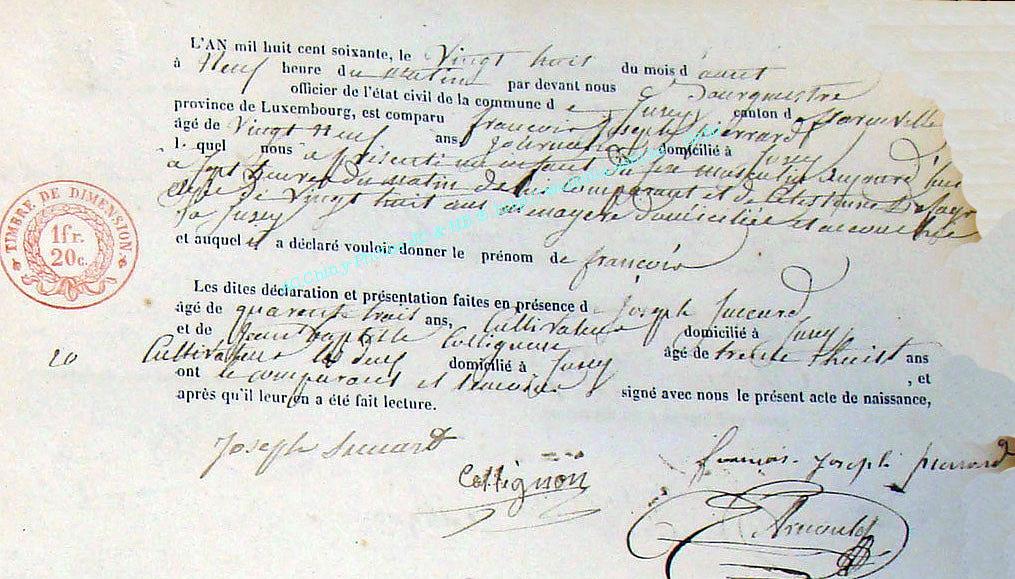 L'AN mil huit cent soixante, le Vingt huit du mois d'aout
à Neuf heure du matin par devant nous Bourgmestre
officier de l'état civil de la commune de Suxy canton de florenville
province de Luxembourg, est comparu francois Joseph pierrard
âgé de Vingt Neuf ans, Journalier domicilié à Suxy
lequel nous a présenté un enfant du sexe masculin
a sept heures du matin de lui comparant et de
agée de Vingt huit ans menagere domiciliée et accouchée
a Suxy
et auquel il a déclaré vouloir donner le prénom de francois
Les dites déclaration et présentation faites en présence de Joseph
âgé de quarente trois ans, Cultivateur domicilié à Suxy
et de Jean baptiste Collignon âgé de trente huit ans
20 Cultivateur domicilié à Suxy , et
ont le comparant et temoins signé avec nous le présent acte de naissance,
après qu'il leur en a été fait lecture.
Joseph
Collignon
francois Joseph pierrard
Arnould
TIMBRE DE DIMENSION
1 fr.
20 c.